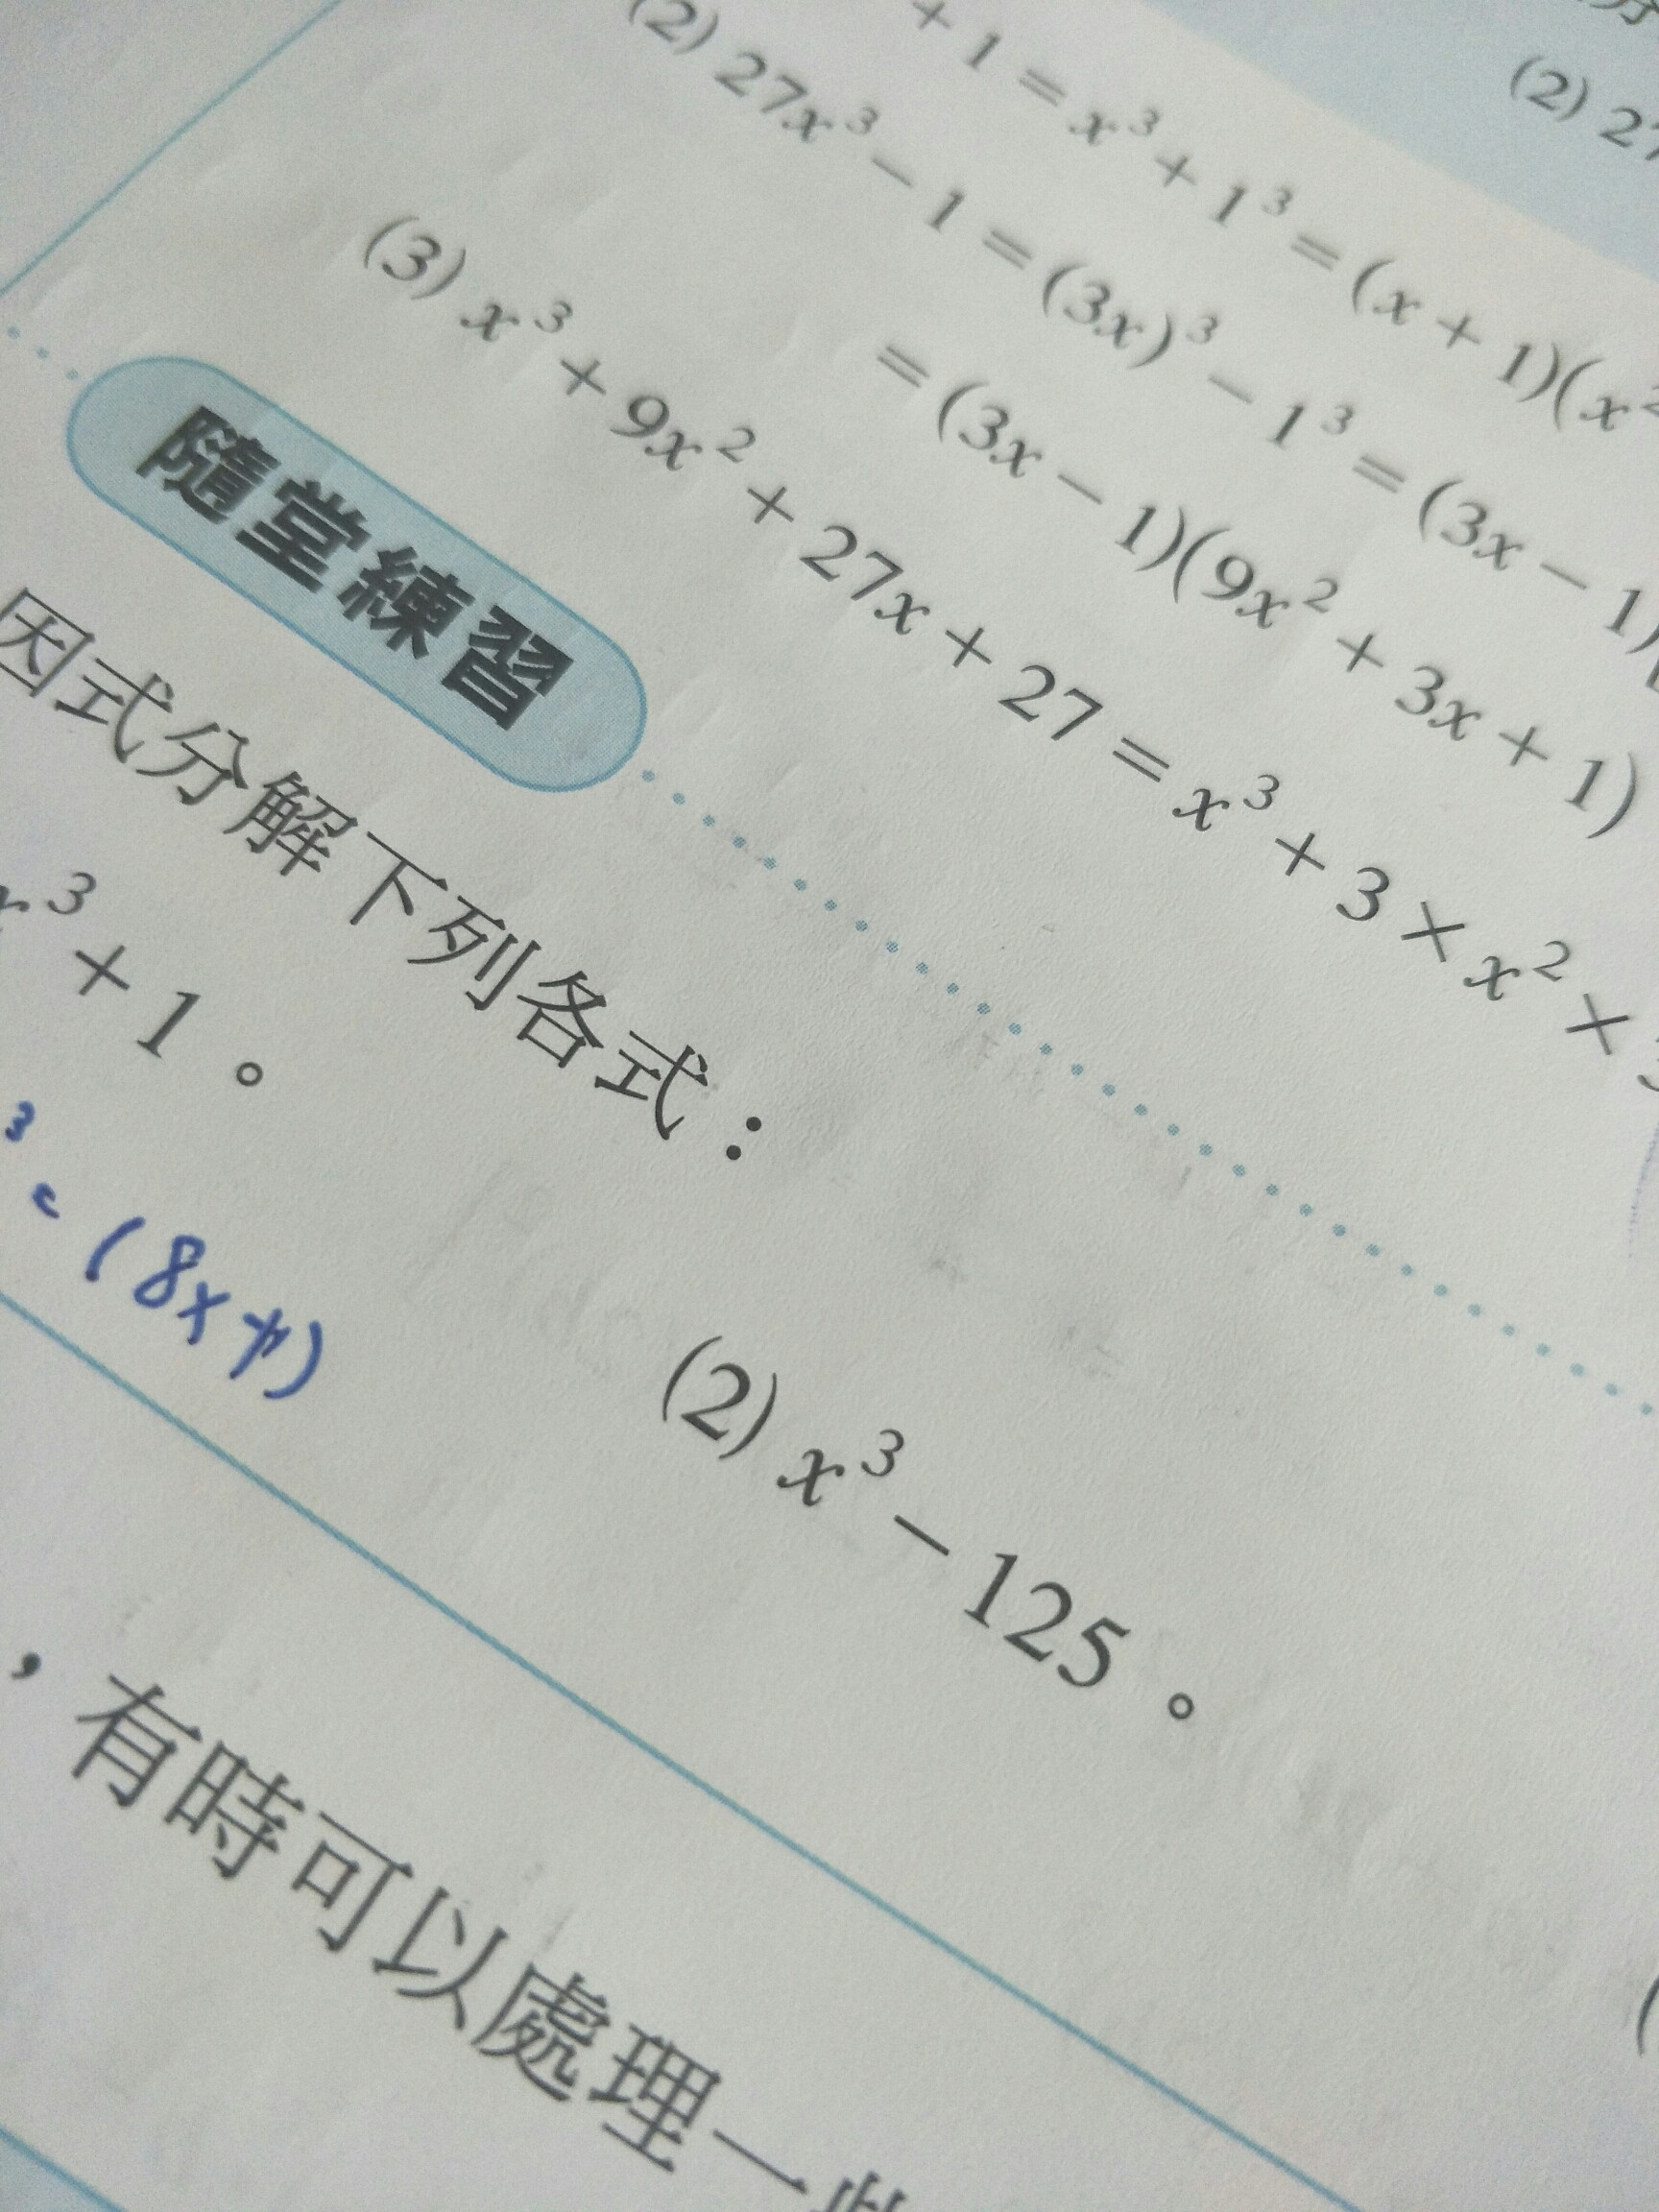 (2) 27
+ 1 = x³ + 1³ = (x + 1)(x²
(2) 27x³ − 1 = (3x)³ − 1³ = (3x − 1)
= (3x − 1)(9x² + 3x + 1)
(3) x³ + 9x² + 27x + 27 = x³ + 3 × x² ×
隨堂練習
因式分解下列各式：
x³ + 1。
(2) x³ − 125。
3
= (8x+1)
，有時可以處理一些